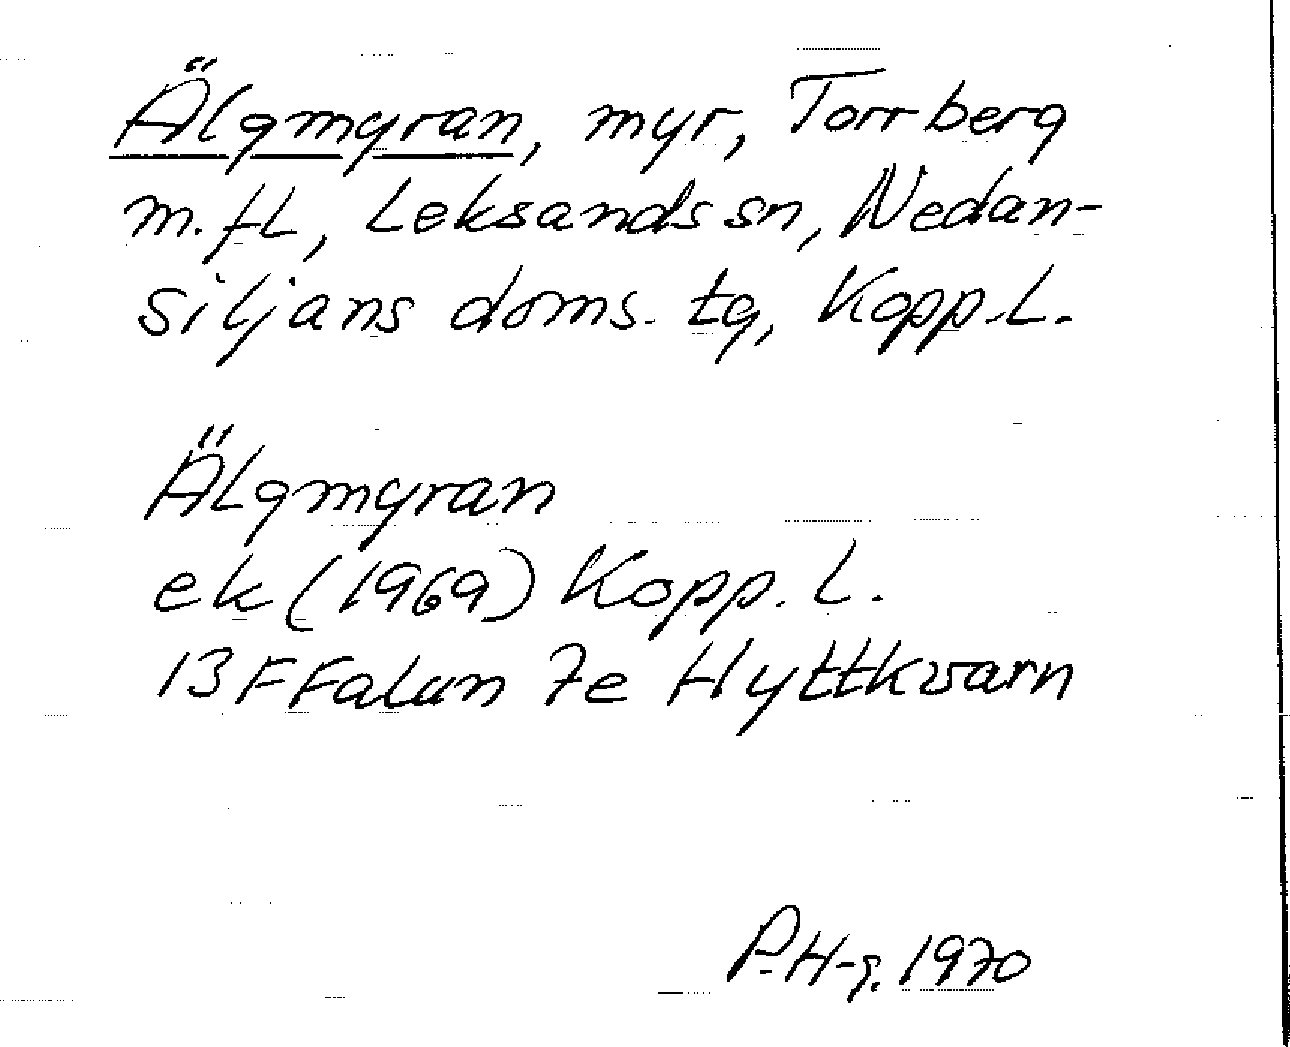 Älgmyran, myr, Torrberg
m.fl, Leksands sn, Nedan-
siljans doms. tg, Kopp.l.
Älgmyran
ek (1969) Kopp. l.
13 F Falun 7e Hyttkvarn
P.H-g. 1970